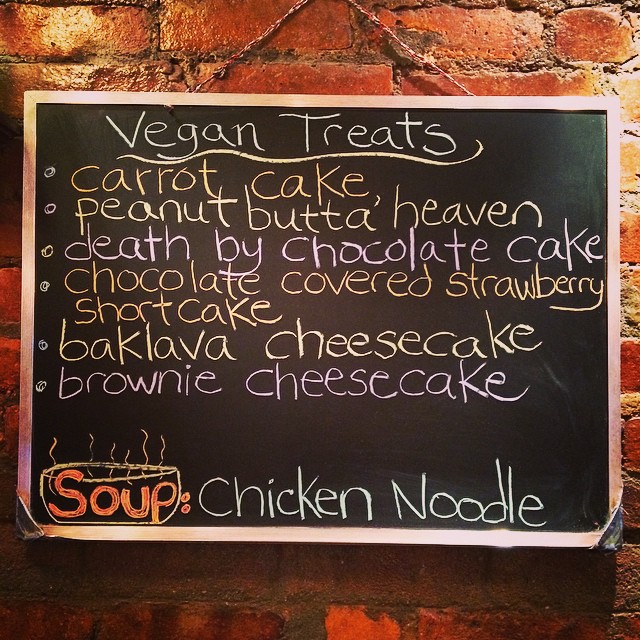 Vegan Treats
carrot cake
peanut butta' heaven
death by chocolate cake
chocolate covered strawberry
shortcake
baklava cheesecake
brownie cheesecake
Soup: Chicken Noodle